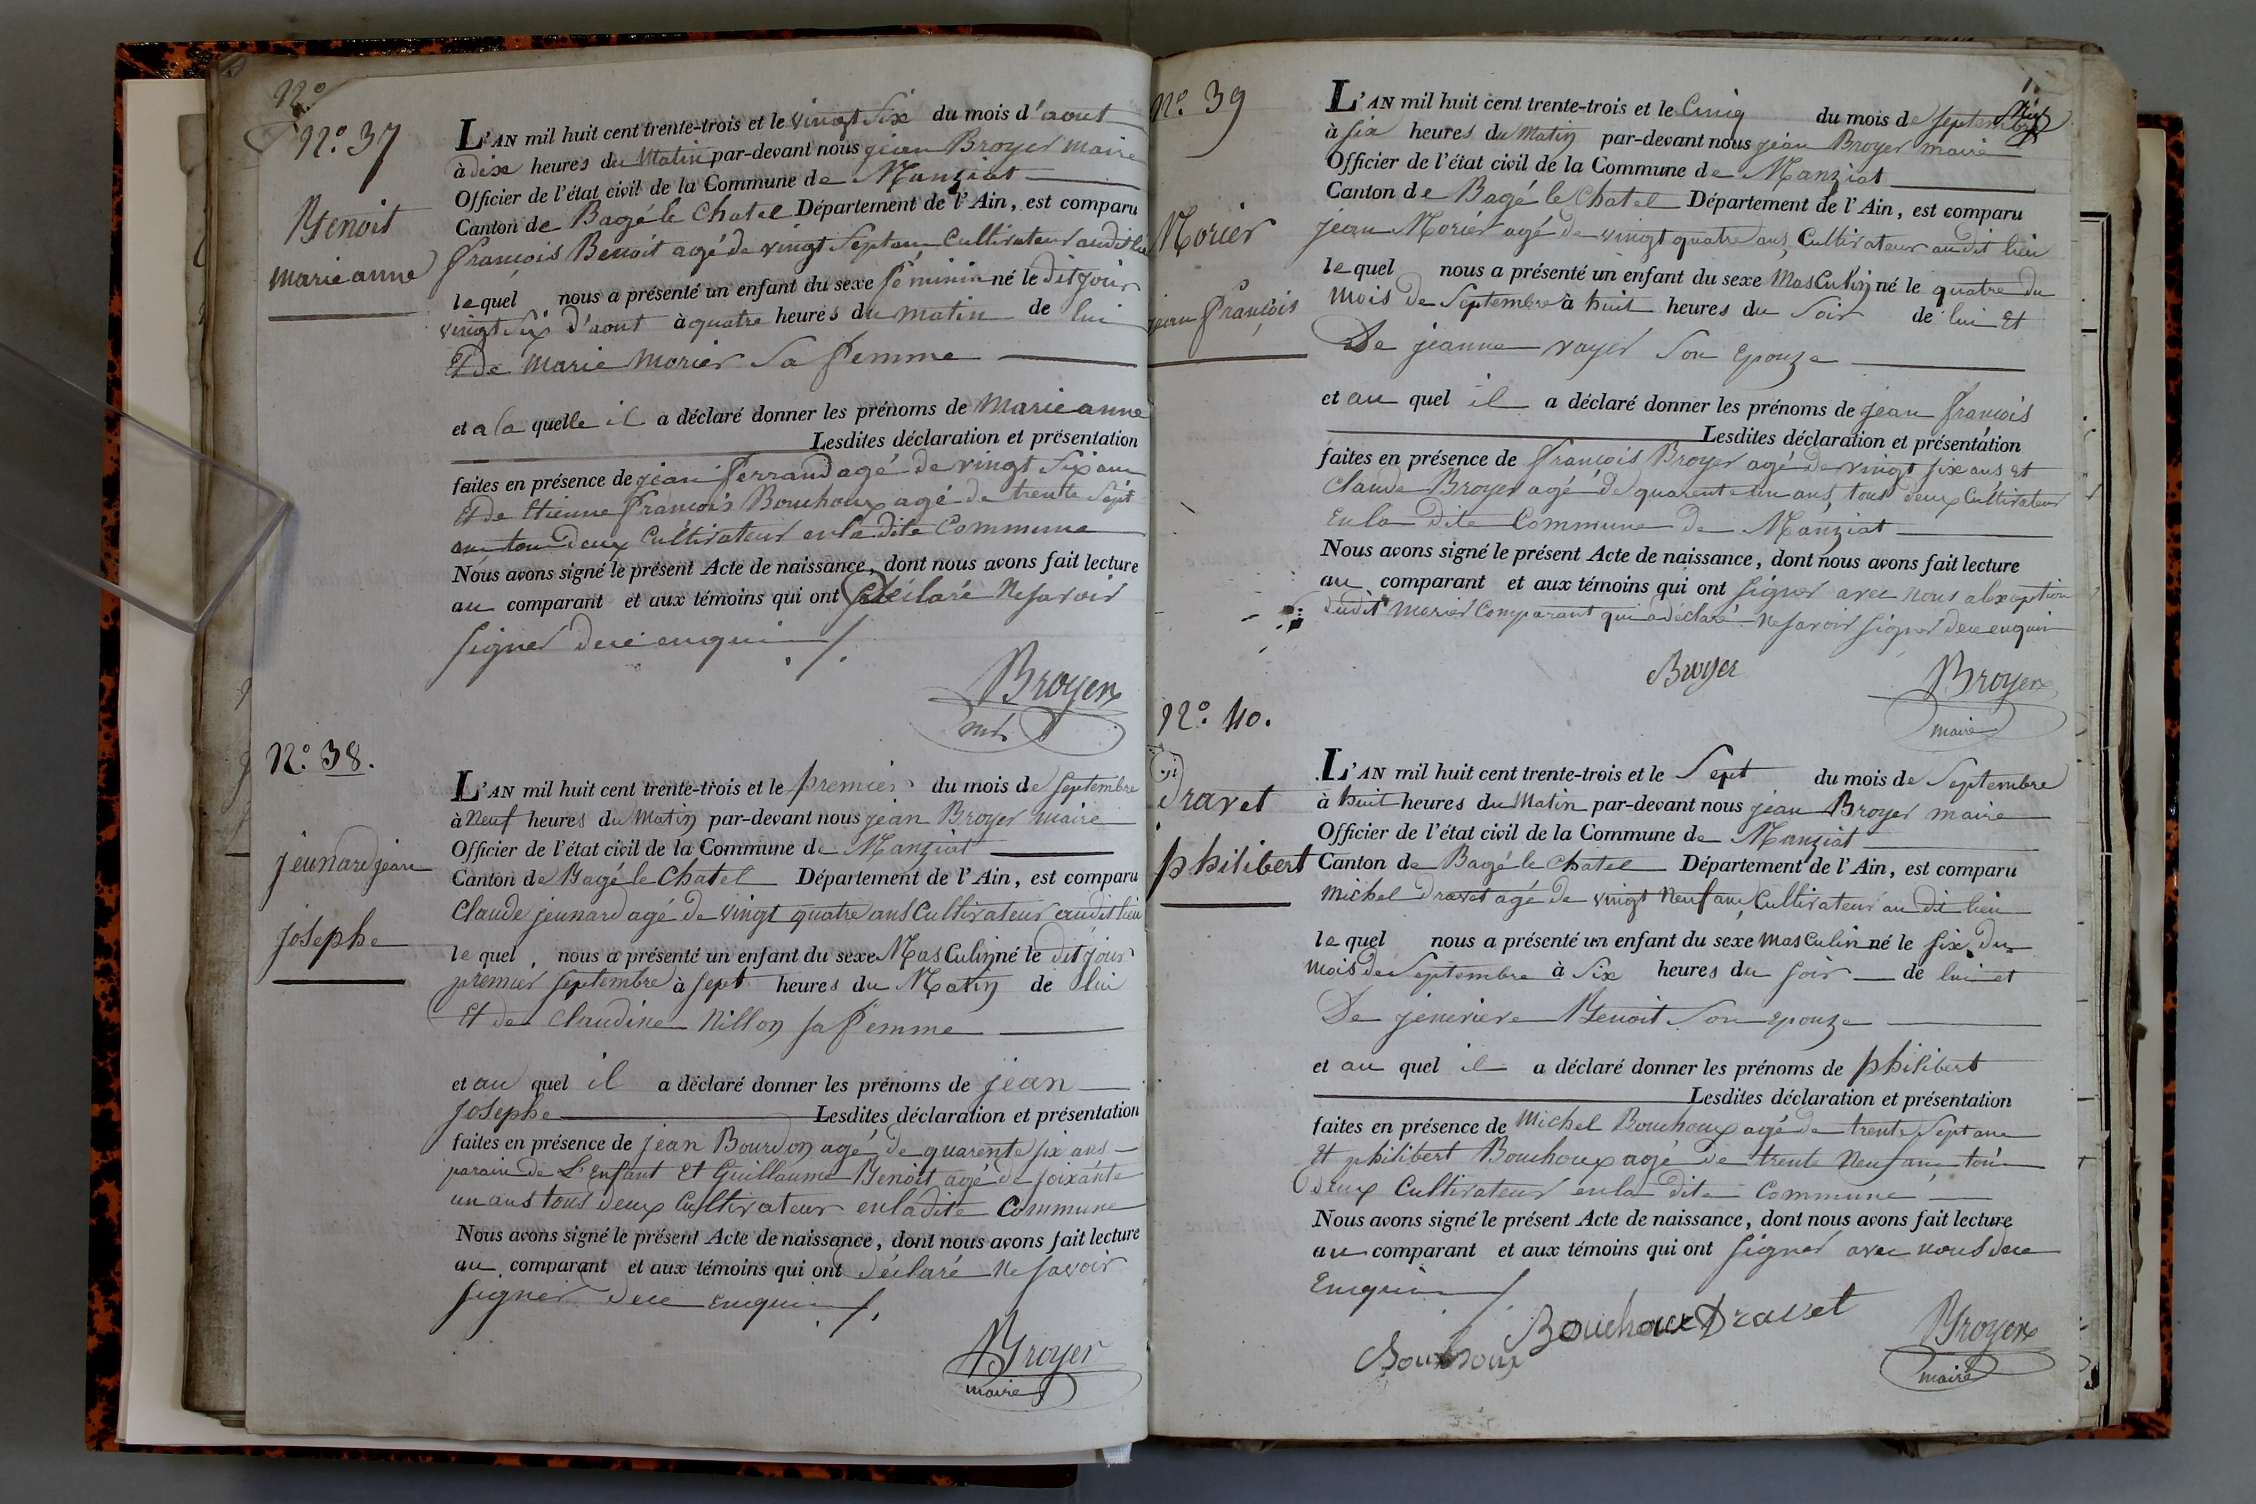 N°
N°. 37
Benoit
marie anne
L'AN mil huit cent trente-trois et le vingt Six du mois d'aout
à dix heures du Matin par-devant nous jean Broyer maire
Officier de l'état civil de la Commune de Manziat
Canton de Bagé le Chatel Département de l'Ain, est comparu
françois Benoit agé de vingt Sept ans Cultivateur audit lieu
le quel nous a présenté un enfant du sexe féminin né le dit jour
vingt Six d'aout à quatre heures du matin de lui
Et de Marie Morier Sa femme
et a la quelle il a déclaré donner les prénoms de Marie anne
Lesdites déclaration et présentation
faites en présence de jean ferrand agé de vingt Six ans
Et de Etienne françois Bouchoux agé de trente Sept
ans tou deux Cultivateur en la dite Commune
Nous avons signé le présent Acte de naissance, dont nous avons fait lecture
au comparant et aux témoins qui ont déclaré Ne Savoir
Signer de ce enquis
Broyer
N°. 38.
jeunard jean
josephe
L'AN mil huit cent trente-trois et le premier du mois de Septembre
à Neuf heures du Matin par-devant nous jean Broyer Maire
Officier de l'état civil de la Commune de Manziat
Canton de Bagé le Chatel Département de l'Ain, est comparu
Claude jeunard agé de vingt quatre ans Cultivateur audit lieu
le quel nous a présenté un enfant du sexe Masculin né le dit jour
premier Septembre à Sept heures du Matin de lui
Et de Claudine Nillon Sa femme
et au quel il a déclaré donner les prénoms de jean
Josephe Lesdites déclaration et présentation
faites en présence de jean Bourdon agé de quarente Six ans
parain de L'Enfant Et Guillaume Benoit agé de Soixante
un ans tous deux Cultivateur en ladite Commune
Nous avons signé le présent Acte de naissance, dont nous avons fait lecture
au comparant et aux témoins qui ont déclaré Ne Savoir
Signer de ce enquis
Broyer
maire
N°. 39
Morier
jean françois
L'AN mil huit cent trente-trois et le Cinq du mois de Septembre
à Six heures du Matin par-devant nous jean Broyer maire
Officier de l'état civil de la Commune de Manziat
Canton de Bagé le Chatel Département de l'Ain, est comparu
jean Morier agé de vingt quatre ans Cultivateur au dit lieu
le quel nous a présenté un enfant du sexe Masculin né le quatre du
Mois de Septembre à huit heures du Soir de lui Et
De jeanne Voyer Son Epouze
et au quel il a déclaré donner les prénoms de jean françois
Lesdites déclaration et présentation
faites en présence de françois Broyer agé de vingt Six ans et
Claude Broyer agé de quarente un ans, tous deux Cultivateur
En la dite Commune de Manziat
Nous avons signé le présent Acte de naissance, dont nous avons fait lecture
au comparant et aux témoins qui ont Signer avec nous a lexception
dudit Morier Comparant qui a déclaré Ne Savoir Signer de ce enquis
Broyer
Broyer
maire
N°. 40.
Dravet
philibert
L'AN mil huit cent trente-trois et le Sept du mois de Septembre
à huit heures du Matin par-devant nous jean Broyer maire
Officier de l'état civil de la Commune de Manziat
Canton de Bagé le Chatel Département de l'Ain, est comparu
Michel Dravet agé de vingt Neuf ans Cultivateur au dit lieu
le quel nous a présenté un enfant du sexe Masculin né le Six du
Mois de Septembre à Six heures du Soir de lui et
De jenevieve Benoit Son Epouze
et au quel il a déclaré donner les prénoms de philibert
Lesdites déclaration et présentation
faites en présence de Michel Bouchoux agé de trente Sept ans
Et philibert Bouchoux agé de trente Neuf ans tou
deux Cultivateur en la dite Commune
Nous avons signé le présent Acte de naissance, dont nous avons fait lecture
au comparant et aux témoins qui ont Signer avec nous de ce
Enquis
Bouchoux Dravet
Bouchoux
Broyer
maire